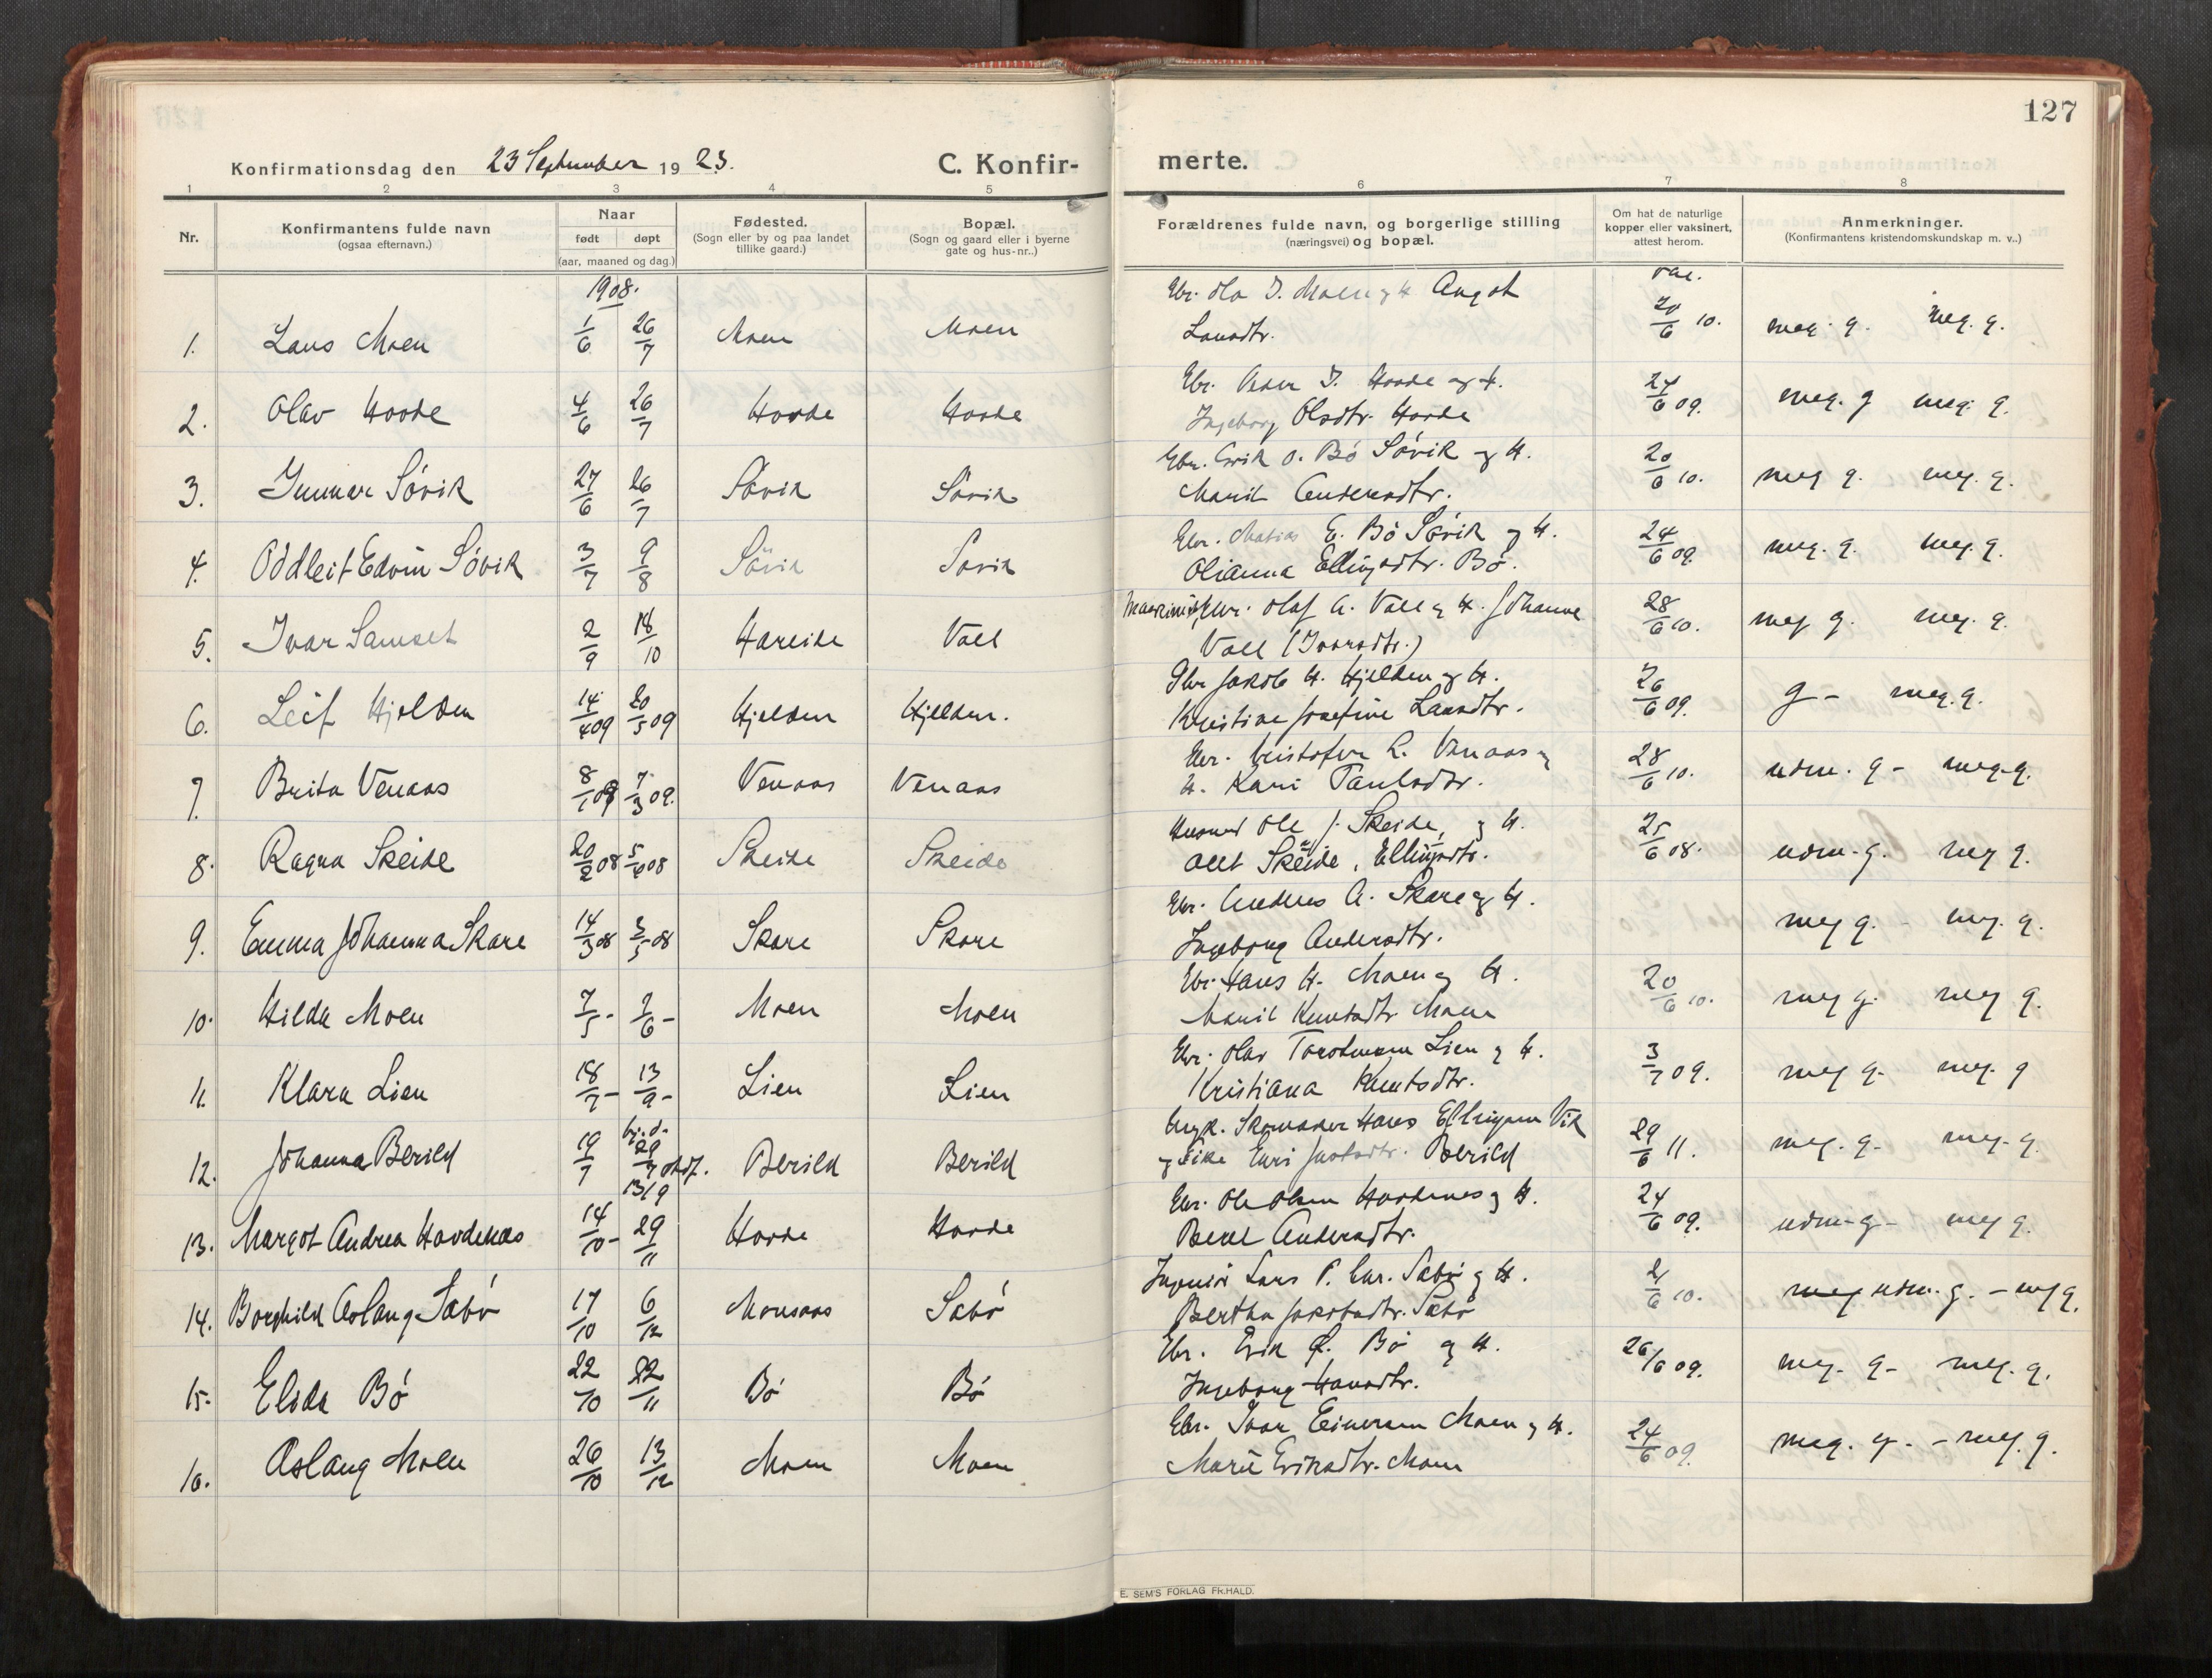 127
Konfirmationsdag den 23 September 1923. C. Konfirmerte.
1 2 3 4 5 6 7 8
Nr. Konfirmantens fulde navn (ogsaa efternavn.) Naar født døpt (aar, maaned og dag.) Fødested. (Sogn eller by og paa landet tillike gaard.) Bopæl. (Sogn og gaard eller i byerne gate og hus-nr..) Forældrenes fulde navn, og borgerlige stilling (næringsvei) og bopæl. Om hat de naturlige kopper eller vaksinert, attest herom. Anmerkninger. (Konfirmantens kristendomskundskap m. v..)
1908.
vac.
1. Lars Moen 1/6 26/7 Moen Moen Gbr. Ola I. Moen og H. Larsdtr. 20/6 10. meg. g. meg. g.
2. Olav Hovde 4/6 26/7 Hovde Hovde Gbr. Peder I. Hovde og H. Ingeborg Olsdtr. Hovde 24/6 09. meg. g meg. g.
3. Gunnar Søvik 27/6 26/7 Søvik Søvik Gbr. Erik O. Bö Søvik og H. Marit Andersdtr. 20/6 10. meg g. meg. g.
4. Oddleif Edvin Søvik 3/7 9/8 Søvik Søvik Gbr. Matias E. Bö Søvik og H. Olianna Ellingsdtr. Bö. 24/6 09. meg. g. meg. g.
5. Ivar Samset 2/9 18/10 Hareide Voll Gbr. Olaf A. Voll og H. Johanne Voll (Ivarsdtr.) 28/6 10. meg g. meg. g.
6. Leif Hjelden 14/4 09 20/5 09 Hjelden Hjelden. Gbr Jakob H. Hjelden og H. Kristine Josefine Larsdtr. 26/6 09. g - meg. g.
7. Brita Venaas 8/1 09 7/3 09. Venaas Venaas Gbr. Kristofer L. Venaas og H. Kari Paulsdtr. 28/6 10. udm. g - meg. g.
8. Ragna Skeide 20/2 08 5/4 08 Skeide Skeide Husmand Ole J. Skeide, og H. Olet Skeide, Ellingsdtr. 25/6 08. udm. g. meg g.
9. Emma Johanna Skare 14/3 08 3/5 08 Skare Skare Gbr. Anders A. Skare og H. Ingeborg Andersdtr. meg g. - meg. g.
10. Hilda Moen 7/5 - 7/6 - Moen Moen Gbr. Hans H. Moen og H. Marit Knutsdtr Moen 20/6 10. meg g. meg g.
11. Klara Lien 18/7 - 13/9 - Lien Lien Gbr. Olav Torstensen Lien og H. Kristiana Knutsdtr. 3/7 09. meg g. meg. g
12. Johanna Berild 19/7 hj. d. 29/7 stadf. 13/9 Berild Berild Ungk. Skomaker Hans Ellingsen Vik og Pike Guri Berild 29/6 11. meg. g. meg. g.
13. Margot Andrea Hovdenæs 14/10 - 29/11 Hovde Hovde Gbr. Ole Olsen Hovdenes og H. Berel Andersdtr. 24/6 09. udm. g - meg g.
14. Borghild Aslaug Sæbø 17/10 6/12 Monsaas Sæbø Lars P. Chr. Sæbø og H. Bertha Jakobsdtr. Sæbø 2/6 10. meg udm. g. - meg g.
15. Elida Bø 22/10 22/11 Bø Bø Gbr. Erik Bø og H. Ingeborg Hansdtr. 26/6 09. meg. g - meg. g.
16. Aslaug Moen 26/10 13/12 Moen Moen Gbr. Ivar Einersen Moen og H. Marie Eriksdtr. Moen 24/6 09. meg. g. - meg. g.
E. SEM'S FORLAG FR.HALD.